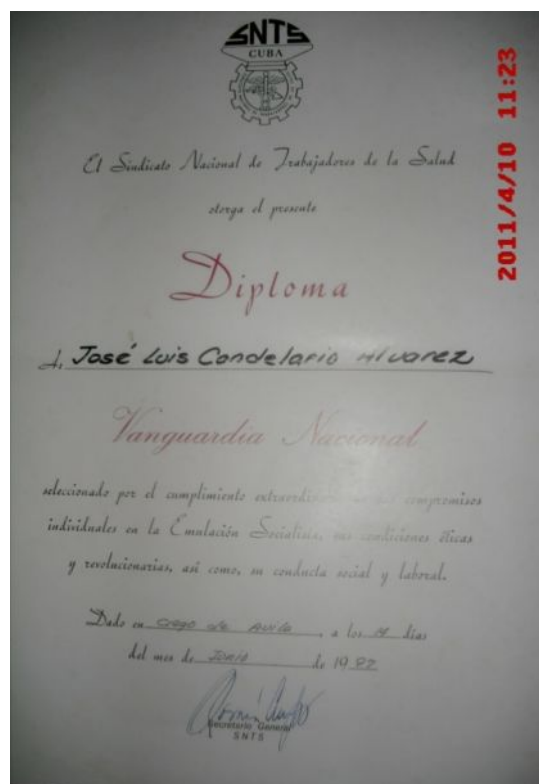 SNTS
CUBA
El Sindicato Nacional de Trabajadores de la Salud
otorga el presente
Diploma
A, José Luis Candelario Alvarez
Vanguardia Nacional
seleccionado por el cumplimiento compromisos
individuales en la Emulación Socialista, sus condiciones éticas
y revolucionarias, así como, su conducta social y laboral.
Dado en Ciego de Avila, a los días
del mes de Junio de 1982
Secretario General
SNTS
2011/4/10 11:23